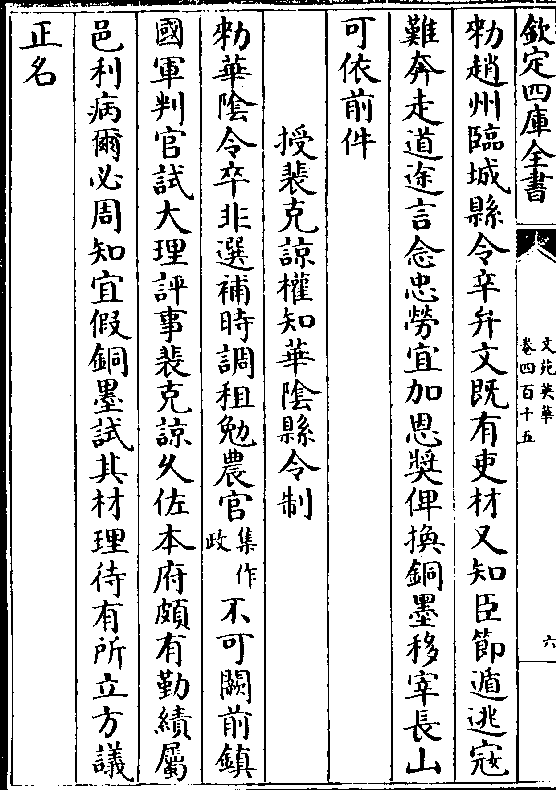 欽定四庫全書
文苑英華
卷四百十五
六
勑趙州臨城縣令辛弁文既有吏材又知臣節遁逃寇
難奔走道途言念忠勞宜加恩奬俾換銅墨移宰長山
可依前件
授裴克諒權知華陰縣令制
勑華陰令卒非選補時調租勉農官集作政不可闕前鎮
國軍判官試大理評事裴克諒久佐本府頗有勤績屬
邑利病爾必周知宜假銅墨試其材理待有所立方議
正名